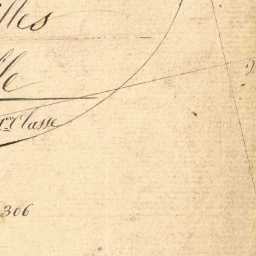 lles
lle
re Classe
306